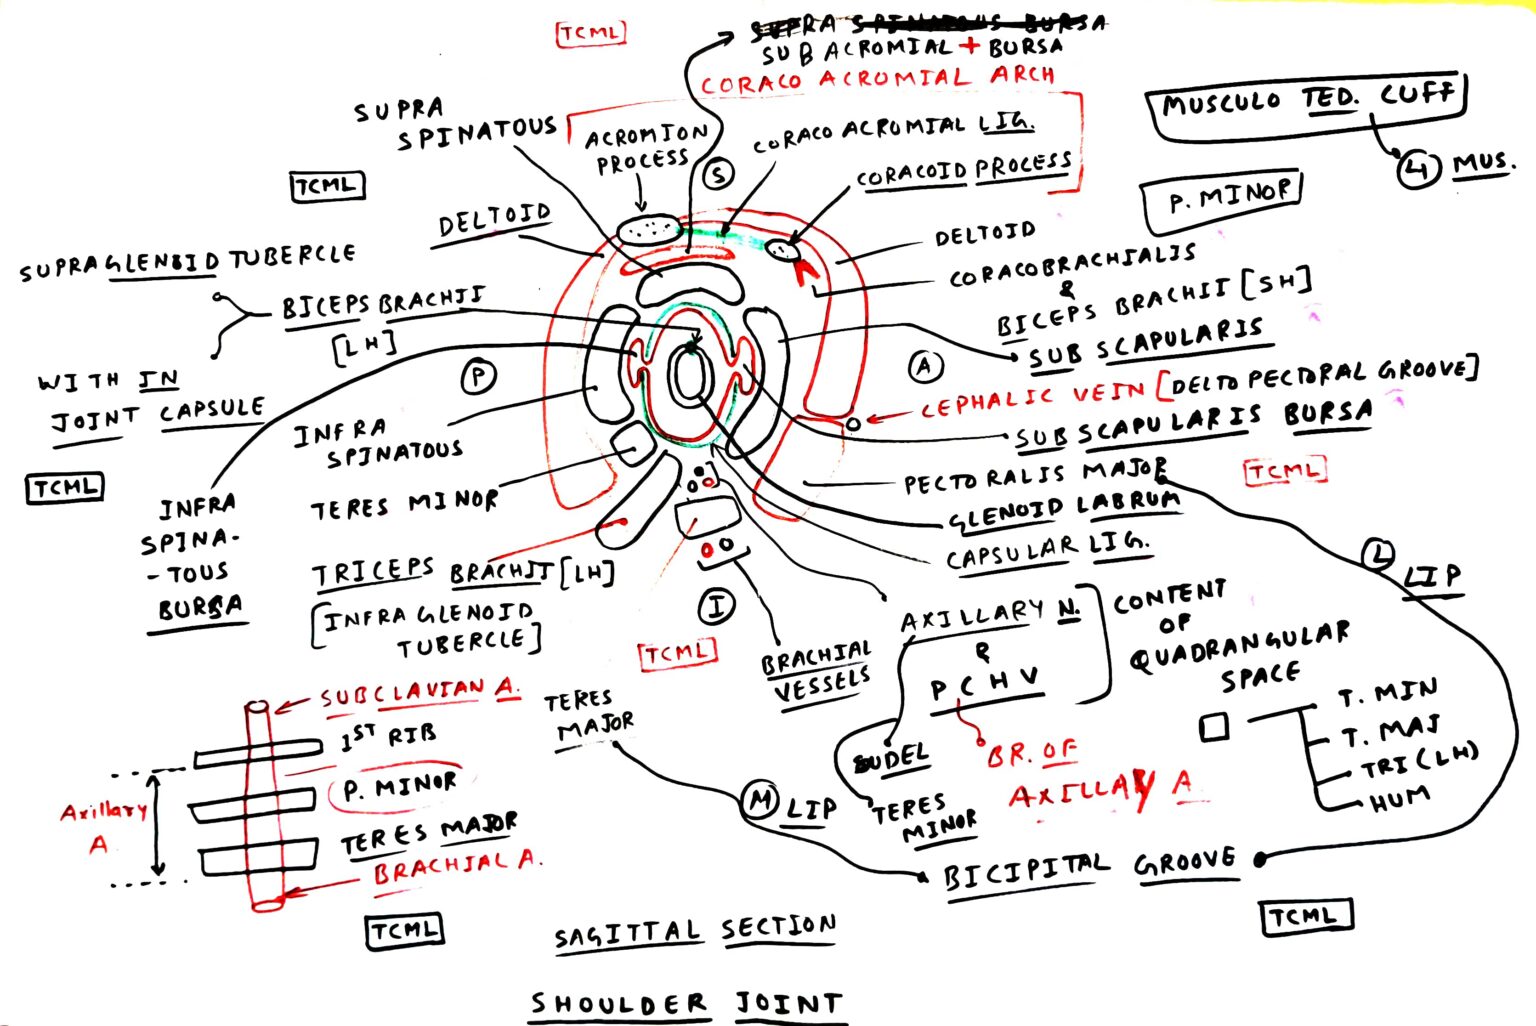 TCML
SUPRA SPINATOUS BURSA
SUB ACROMIAL + BURSA
CORACO ACROMIAL ARCH
SUPRA
SPINATOUS
ACROMION
PROCESS
S
CORACO ACROMIAL LIG.
CORACOID PROCESS
MUSCULO TED. CUFF
4 MUS.
P. MINOR
TCML
DELTOID
DELTOID
SUPRAGLENOID TUBERCLE
BICEPS BRACHII
[LH]
WITH IN
JOINT CAPSULE
CORACOBRACHIALIS
&
BICEPS BRACHII [SH]
SUB SCAPULARIS
P
A
CEPHALIC VEIN [DELTO PECTORAL GROOVE]
SUB SCAPULARIS BURSA
INFRA
SPINATOUS
TCML
TCML
PECTORALIS MAJOR
GLENOID LABRUM
CAPSULAR LIG.
INFRA
SPINA-
-TOUS
BURSA
TERES MINOR
TRICEPS BRACHII [LH]
[INFRA GLENOID
TUBERCLE]
I
TCML
BRACHIAL
VESSELS
AXILLARY N.
&
P C H V
CONTENT
OF
QUADRANGULAR
SPACE
L LIP
T. MIN
T. MAJ
TRI (LH)
HUM
BR. OF
AXILLARY A
TERES
MINOR
TERES
MAJOR
M LIP
BICIPITAL GROOVE
SUBCLAVIAN A.
1ST RIB
P. MINOR
TERES MAJOR
BRACHIAL A.
Axillary
A
TCML
TCML
SAGITTAL SECTION
SHOULDER JOINT